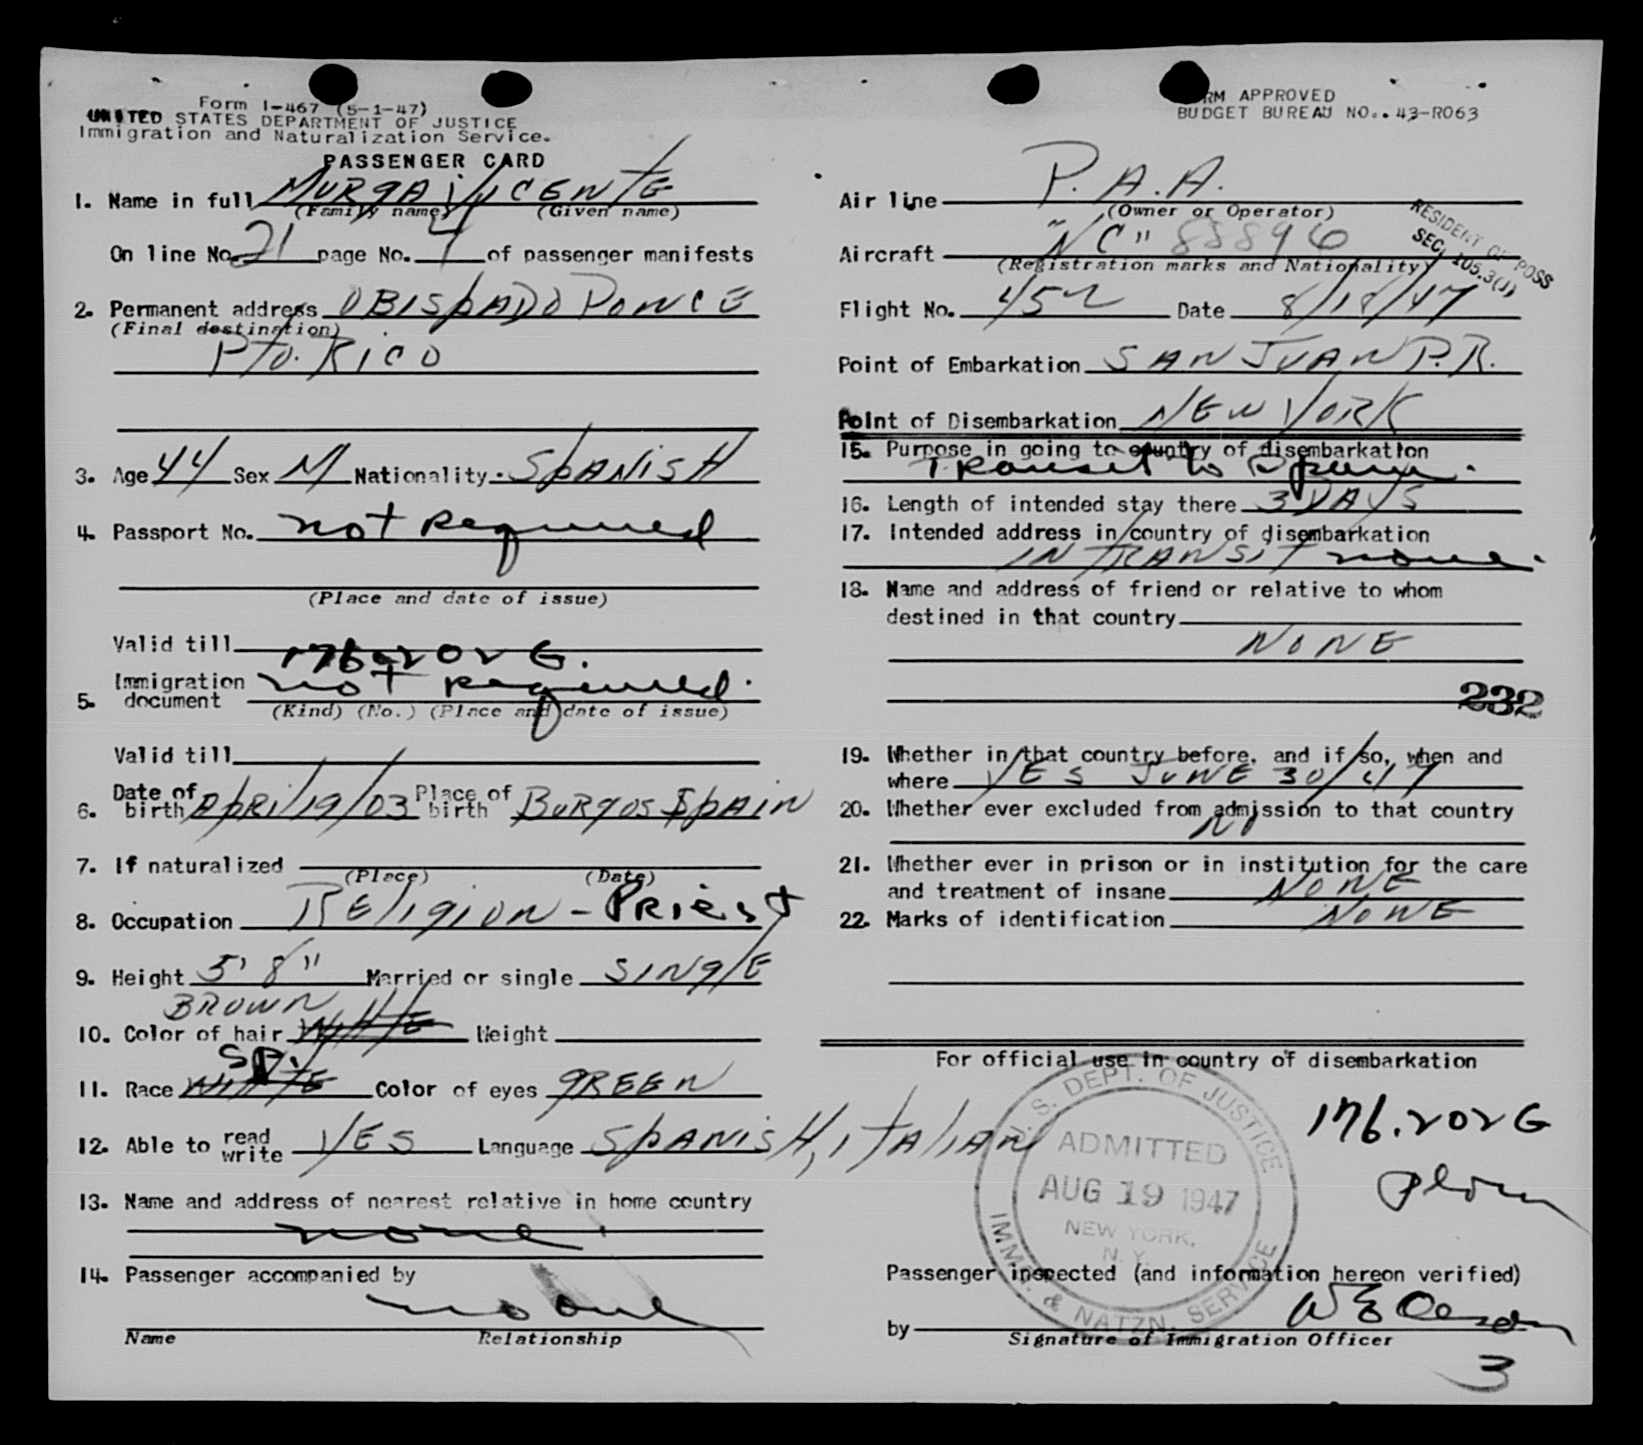 Form I-467 (5-1-47)
UNITED STATES DEPARTMENT OF JUSTICE
Immigration and Naturalization Service.
PASSENGER CARD
1. Name in full MURGA VICENTE
(Family name) (Given name)
On line No. 21 page No. 4 of passenger manifests
2. Permanent address OBISPADO PONCE
(Final destination)
Pto. RICO
3. Age 44 Sex M Nationality SPANISH
4. Passport No. not required
(Place and date of issue)
Valid till
176.202 G.
5. Immigration document not required.
(Kind) (No.) (Place and date of issue)
Valid till
6. Date of birth APRIl 19/03 Place of birth BURGOS SPAIN
7. If naturalized
(Place) (Date)
8. Occupation RElIgION - PRiest
9. Height 5' 8" Married or single SINglE
BROWN
10. Color of hair WHITE Weight
SP.
11. Race WHITE Color of eyes gREEN
12. Able to read write YES Language SPANISH, ITAlIAN
13. Name and address of nearest relative in home country
none.
14. Passenger accompanied by
no one
Name Relationship
FORM APPROVED
BUDGET BUREAU NO.. 43-R063
Air line P.A.A.
(Owner or Operator)
RESIDENT OF POSS
SEC. 105.3(J)
Aircraft "NC" 88896
(Registration marks and Nationality)
Flight No. 452 Date 8/18/47
Point of Embarkation SAN JUAN P.R.
Point of Disembarkation NEW YORK
15. Purpose in going to country of disembarkation
Transit to Spain.
16. Length of intended stay there 3 DAYS
17. Intended address in country of disembarkation
IN TRANSIT none.
18. Name and address of friend or relative to whom
destined in that country
NONE
232
19. Whether in that country before, and if so, when and
where YES JUNE 30/47
20. Whether ever excluded from admission to that country
NO
21. Whether ever in prison or in institution for the care
and treatment of insane NONE
22. Marks of identification NONE
For official use in country of disembarkation
U. S. DEPT. OF JUSTICE
ADMITTED
AUG 19 1947
NEW YORK,
N. Y.
IMMG. & NATZN. SERVICE
176.202 G
Passenger inspected (and information hereon verified)
by
Signature of Immigration Officer
3